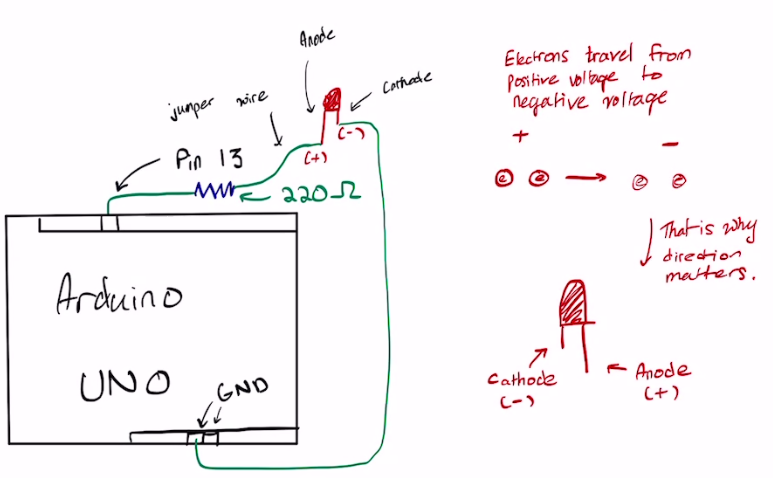 Anode
Cathode
jumper wire
(-)
(+)
Pin 13
220Ω
Arduino
UNO
GND
Electrons travel from
positive voltage to
negative voltage
+ -
e e → e e
That is why
direction
matters.
Cathode
(-)
Anode
(+)